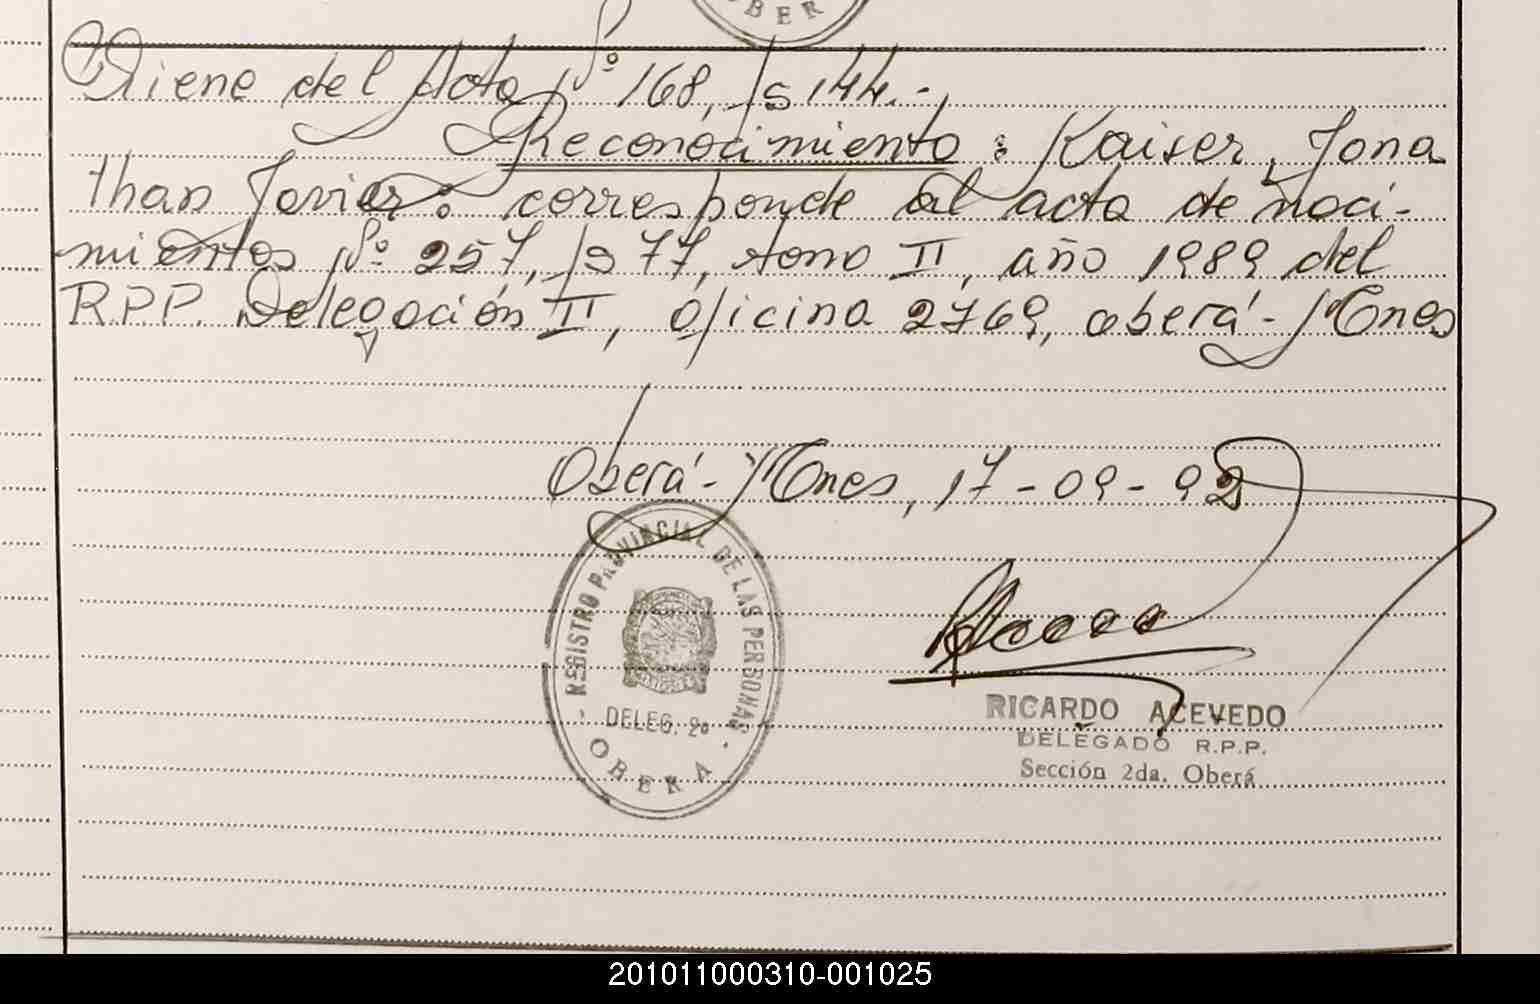 OBER
Viene del Acta Nº 168, fs 144.-
Reconocimiento : Kaiser, Jona
than Javier: corresponde al acta de naci-
mientos Nº 257, fs 77, tomo II, año 1989 del
R.P.P. Delegación II, oficina 2769, oberá - Mnes
Oberá - Mnes, 17 - 09 - 92
REGISTRO PROVINCIAL DE LAS PERSONAS
DELEG. 2ª
OBERA
RICARDO ACEVEDO
DELEGADO R.P.P.
Sección 2da. Oberá
201011000310-001025